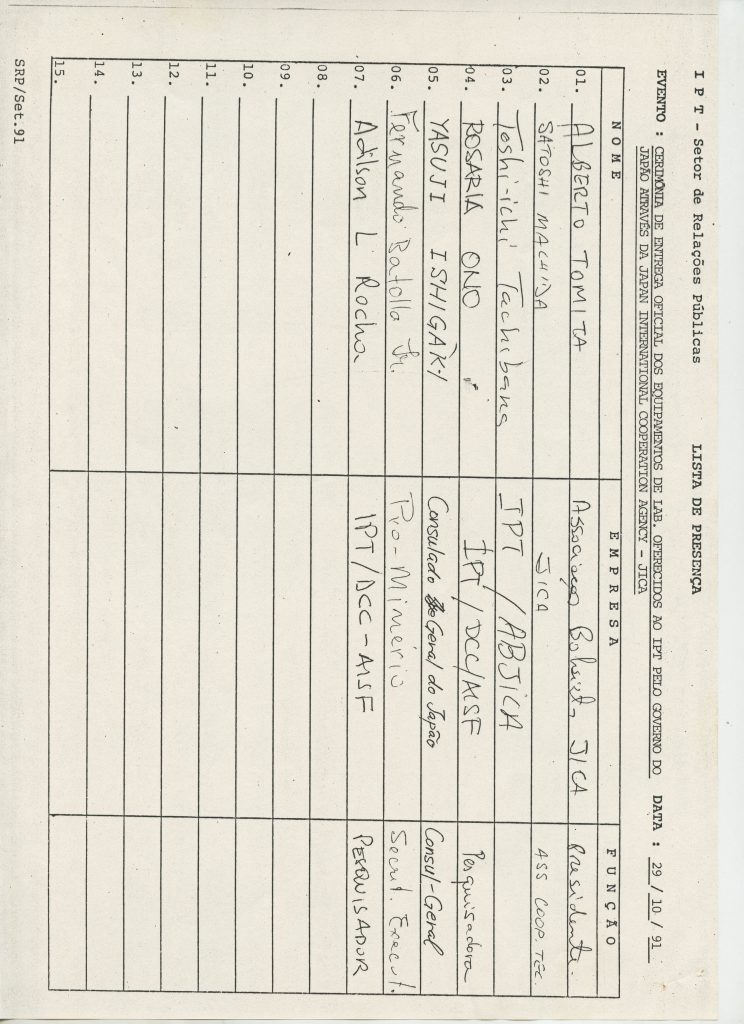 I P T - Setor de Relações Públicas LISTA DE PRESENÇA
EVENTO : CERIMÔNIA DE ENTREGA OFICIAL DOS EQUIPAMENTOS DE LAB. OFERECIDOS AO IPT PELO GOVERNO DO DATA : 29 / 10 / 91
JAPÃO ATRAVÉS DA JAPAN INTERNATIONAL COOPERATION AGENCY - JICA
N O M E E M P R E S A F U N Ç Ã O
01. ALBERTO TOMITA JICA Presidente.
02. SATOSHI MACHIDA JICA ASS COOP. TÉC.
03. Toshi-ichi Tachibana IPT / ABJICA
04. ROSARIA ONO IPT / DCC/AISF Pesquisadora
05. YASUJI ISHIGAKI Consulado Geral do Japão Consul-Geral
06. Fernando Batolla Jr. Pro-Minério Secret. Execut.
07. Adilson L Rocha IPT/DCC-AISF PESQUISADOR
08.
09.
10.
11.
12.
13.
14.
15.
SRP/Set.91